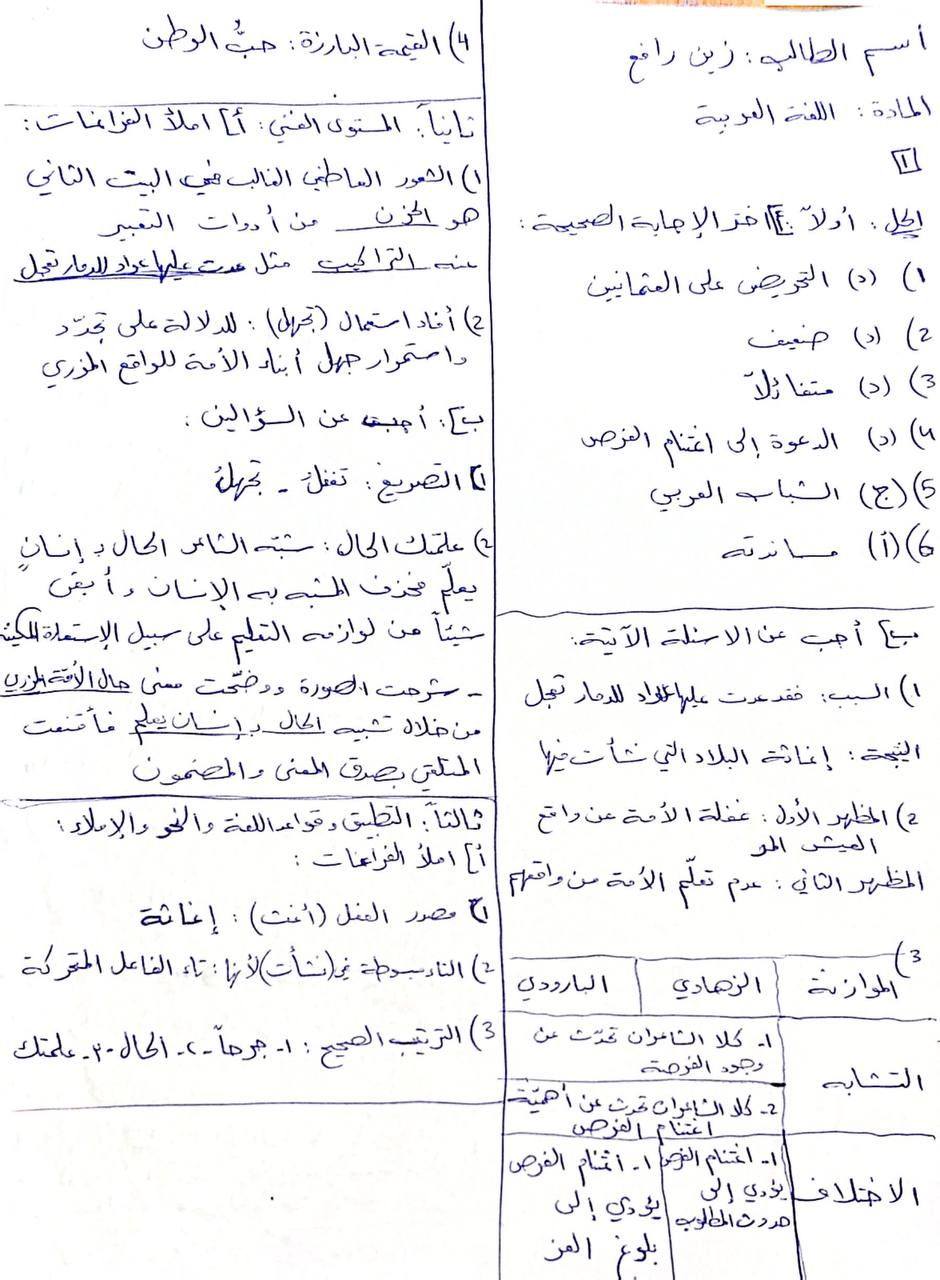 أسم الطالب: زين رافع
المادة: اللغة العربية
1
الحل: أولاً: أ] اختر الإجابة الصحيحة:
1) (د) التحريض على العثمانيين
2) (د) ضعيف
3) (د) متفائلاً
4) (د) الدعوة إلى اغتنام الفرص
5) (ج) الشباب العربي
6) (أ) مساندته
ب] أجب عن الاسئلة الآتية:
1) السبب: فقد عدت عليها عواد للدمار تعجل
النتيجة: إغاثة البلاد التي نشأت فيها
2) المظهر الأول: غفلة الأمة عن واقع
العيش المر
المظهر الثاني: عدم تعلّم الأمة من واقعهم
3)
الموازنة | الزهاوي | البارودي
التشابه
1- كلا الشاعران تحدّث عن
وجود الفرصة
2- كلا الشاعران تحدث عن أهميّة
اغتنام الفرص
الاختلاف
1- اغتنام الفرص
يؤدي إلى
حدوث المطلوب
1- اغتنام الفرص
يؤدي إلى
بلوغ العز
4) القيمة البارزة: حبُّ الوطن
ثانياً: المستوى الفني: أ] املأ الفراغات:
1) الشعور العاطفي الغالب في البيت الثاني
هو الحزن من أدوات التعبير
عنه التراكيب مثل عدت عليها عواد للدمار تعجل
2) أفاد استعمال (تجهل): للدلالة على تجدّد
واستمرار جهل أبناء الأمة للواقع المزري
ب]: أجب عن السؤالين:
1] التصريع: تغفلُ - تجهلُ
2) علمتك الحال: شبّه الشاعر الحال بـ إنسانٍ
يعلّم فحذف المشبه به الإنسان و أبقى
شيئاً من لوازمه التعليم على سبيل الإستعارة المكنية
- شرحت الصورة ووضّحت معنى حال الأمّة المزري
من خلال تشبيه الحال بـ إنسان يعلم فأقنعت
المتلقي بصدق المعنى والمضمون
ثالثاً: التطبيق وقواعد اللغة والنحو والإملاء:
أ] املأ الفراغات:
1] مصدر الفعل (أغث): إغاثة
2) التاء مبسوطة في (نشأت) لأنها: تاء الفاعل المتحركة
3) الترتيب الصحيح: ١- جرحاً - ٢- الحال - ٣- علمتك